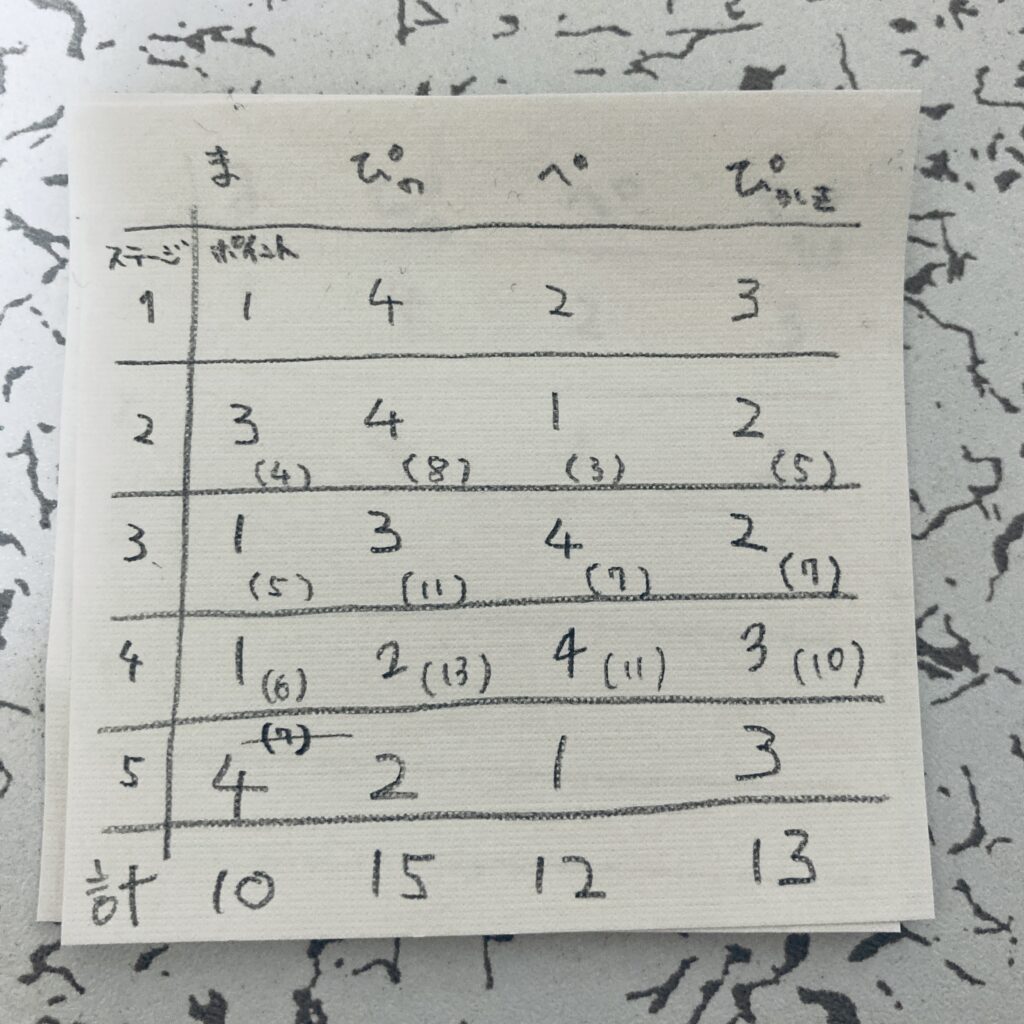 ま ぴの ペ ぴかしき
ステージ ポイント
1 1 4 2 3
2 3 4 1 2
(4) (8) (3) (5)
3 1 3 4 2
(5) (11) (7) (7)
4 1 (6) 2 (13) 4 (11) 3 (10)
(7)
5 4 2 1 3
計 10 15 12 13